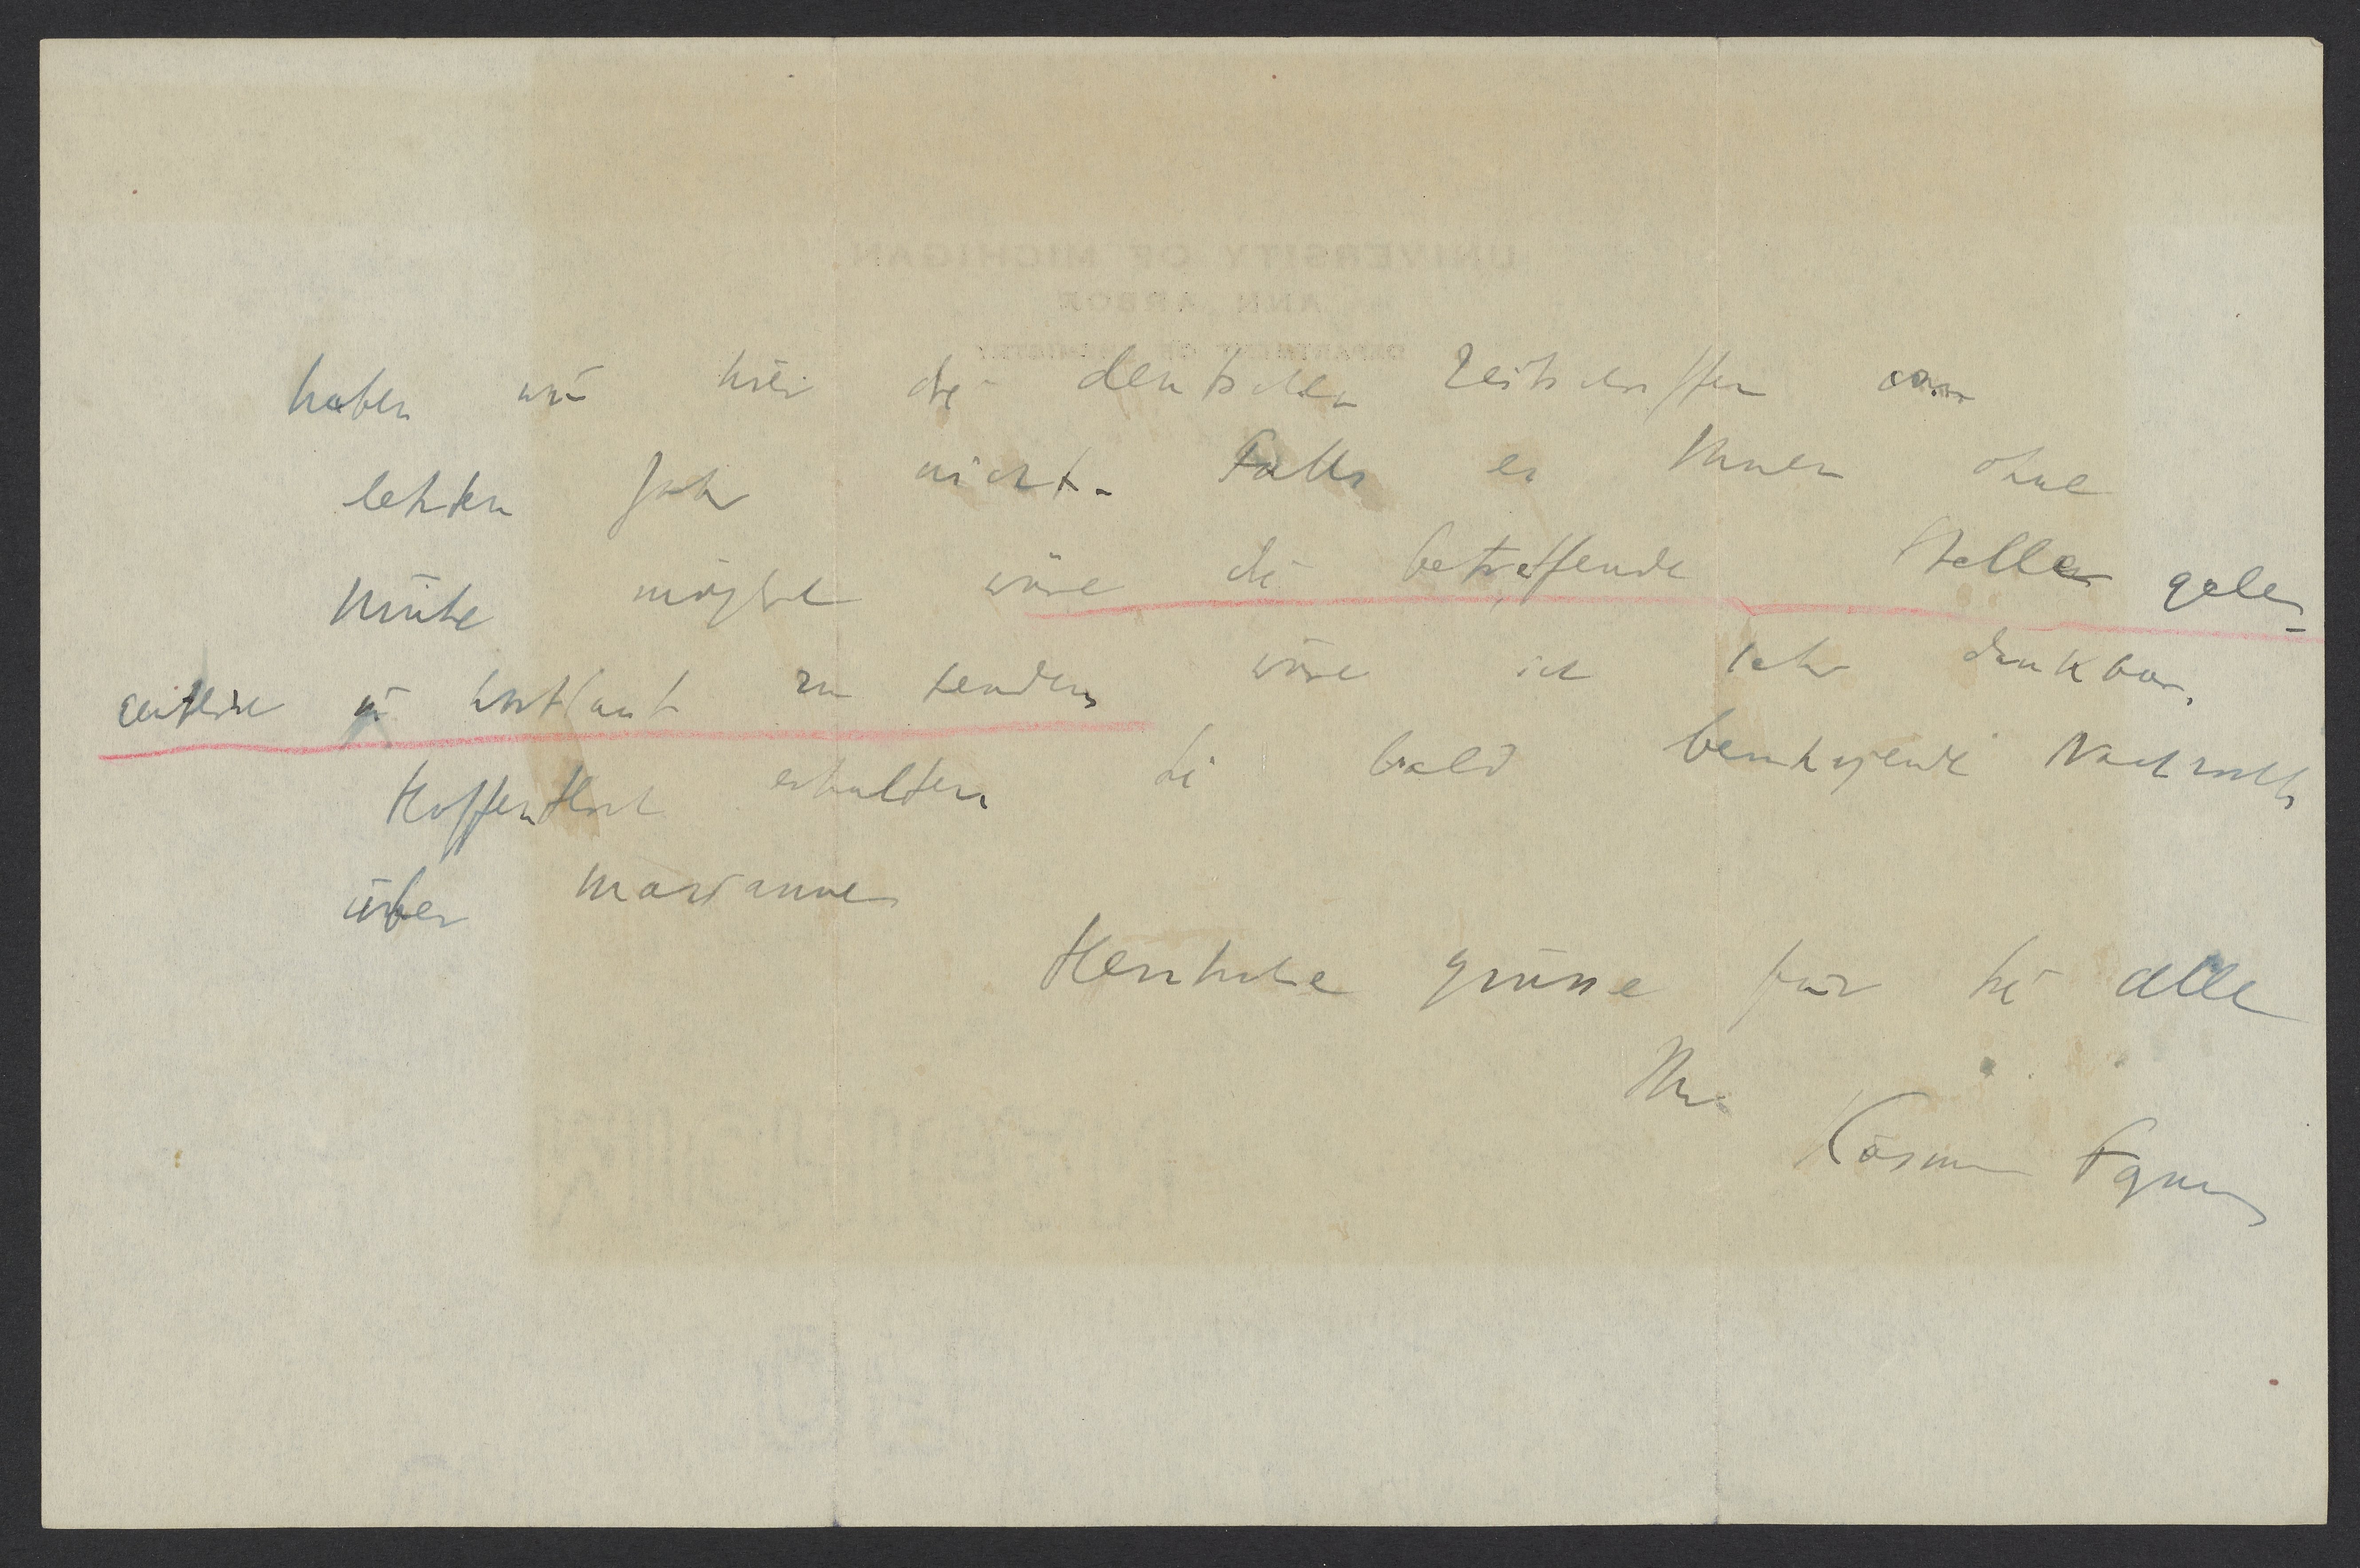 haben wir hier die deutschen Zeitschriften vom
letzten Jahr nicht. Falls es Ihnen ohne
Mühe möglich wäre die betreffende Stelle gele-
gentlich im Wortlaut zu senden wäre ich sehr dankbar.
Hoffentlich erhalten Sie bald beruhigende Nachricht
über Marianne
Herzliche Grüsse für Sie alle
Ihr
Kasimir Fajans
UNIVERSITY OF MICHIGAN
ANN ARBOR
DEPARTMENT OF CHEMISTRY